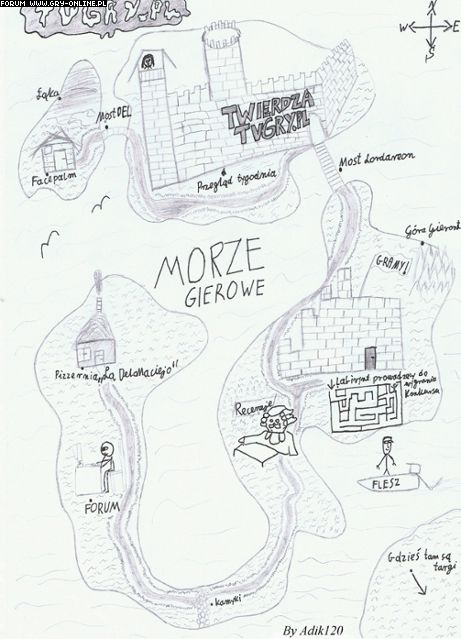 FORUM WWW.GRY-ONLINE.PL
TVGRY.PL
N
W
E
S
Łąka
Most DEL
Facepalm
TWIERDZA
TVGRY.PL
Przegląd tygodnia
Most Lordareon
MORZE
GIEROWE
GRAMY!
Pizzernia „La DelaMaciejo"
Labirynt prowadzący do
wygrania
Konkursa
Recenzje
FLESZ
FORUM
Kamyki
Gdzieś tam są
targi
By Adik120